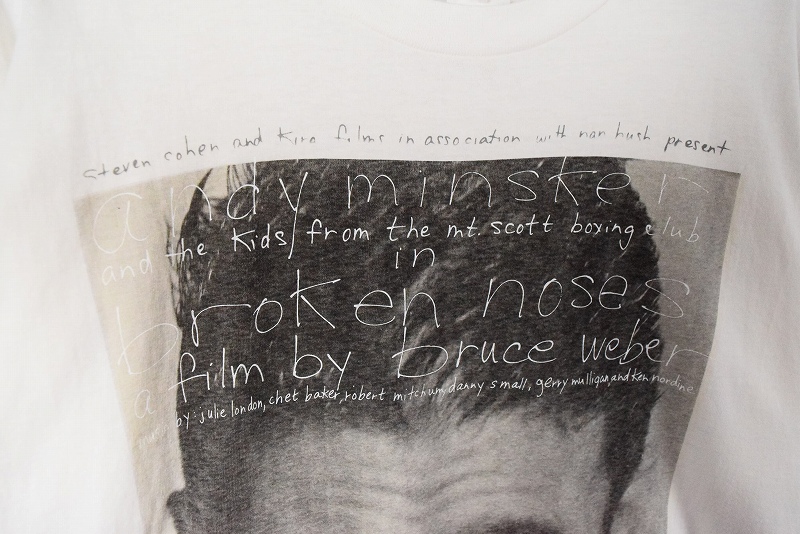 steven cohen and kira films in association with nan bush present
andy minsker
and the kids from the mt. scott boxing club
in
broken noses
a film by bruce weber
music by: julie london, chet baker, robert mitchum, danny small, gerry mulligan and ken nordine